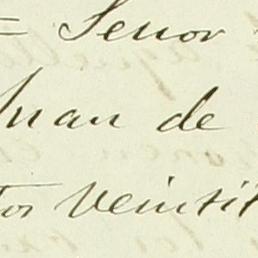 = Señor
Juan de
tos veintit